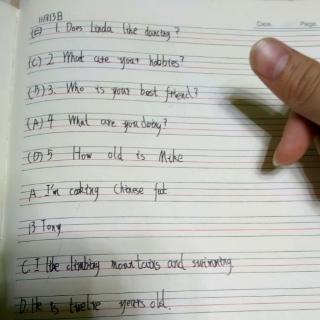 11月13日
Date.
Page
(E) 1. Does Linda like dancing?
(C) 2 What are your hobbies?
(B) 3. Who is your best friend?
(A) 4 What are you doing?
(D) 5 How old is Mike
A. I'm cooking Chinese
B Tony
C. I like climbing mountains and swimming
D. He is twelve years old.